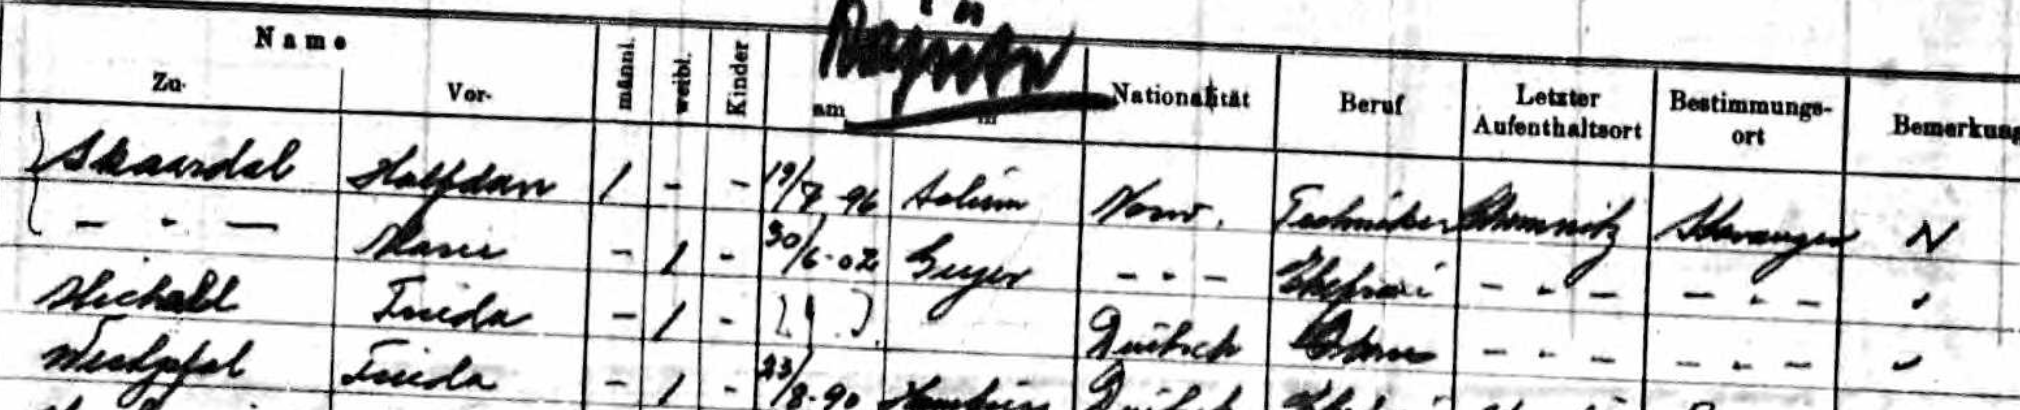 Name
Zu- Vor- männl. weibl. Kinder am in Nationalität Beruf Letzter Aufenthaltsort Bestimmungs-ort Bemerkung
Skaardal Halfdan 1 - - 19/7 96 Norw. Techniker Chemnitz Stavanger N
- " - Marie - 1 - 30/6-02 Geyer - " - Ehefrau - " - - " - "
Michall Frieda - 1 - Deutsch - " - - " - "
Westpfal Frieda - 1 - 23/8-90 Hamburg Deutsch